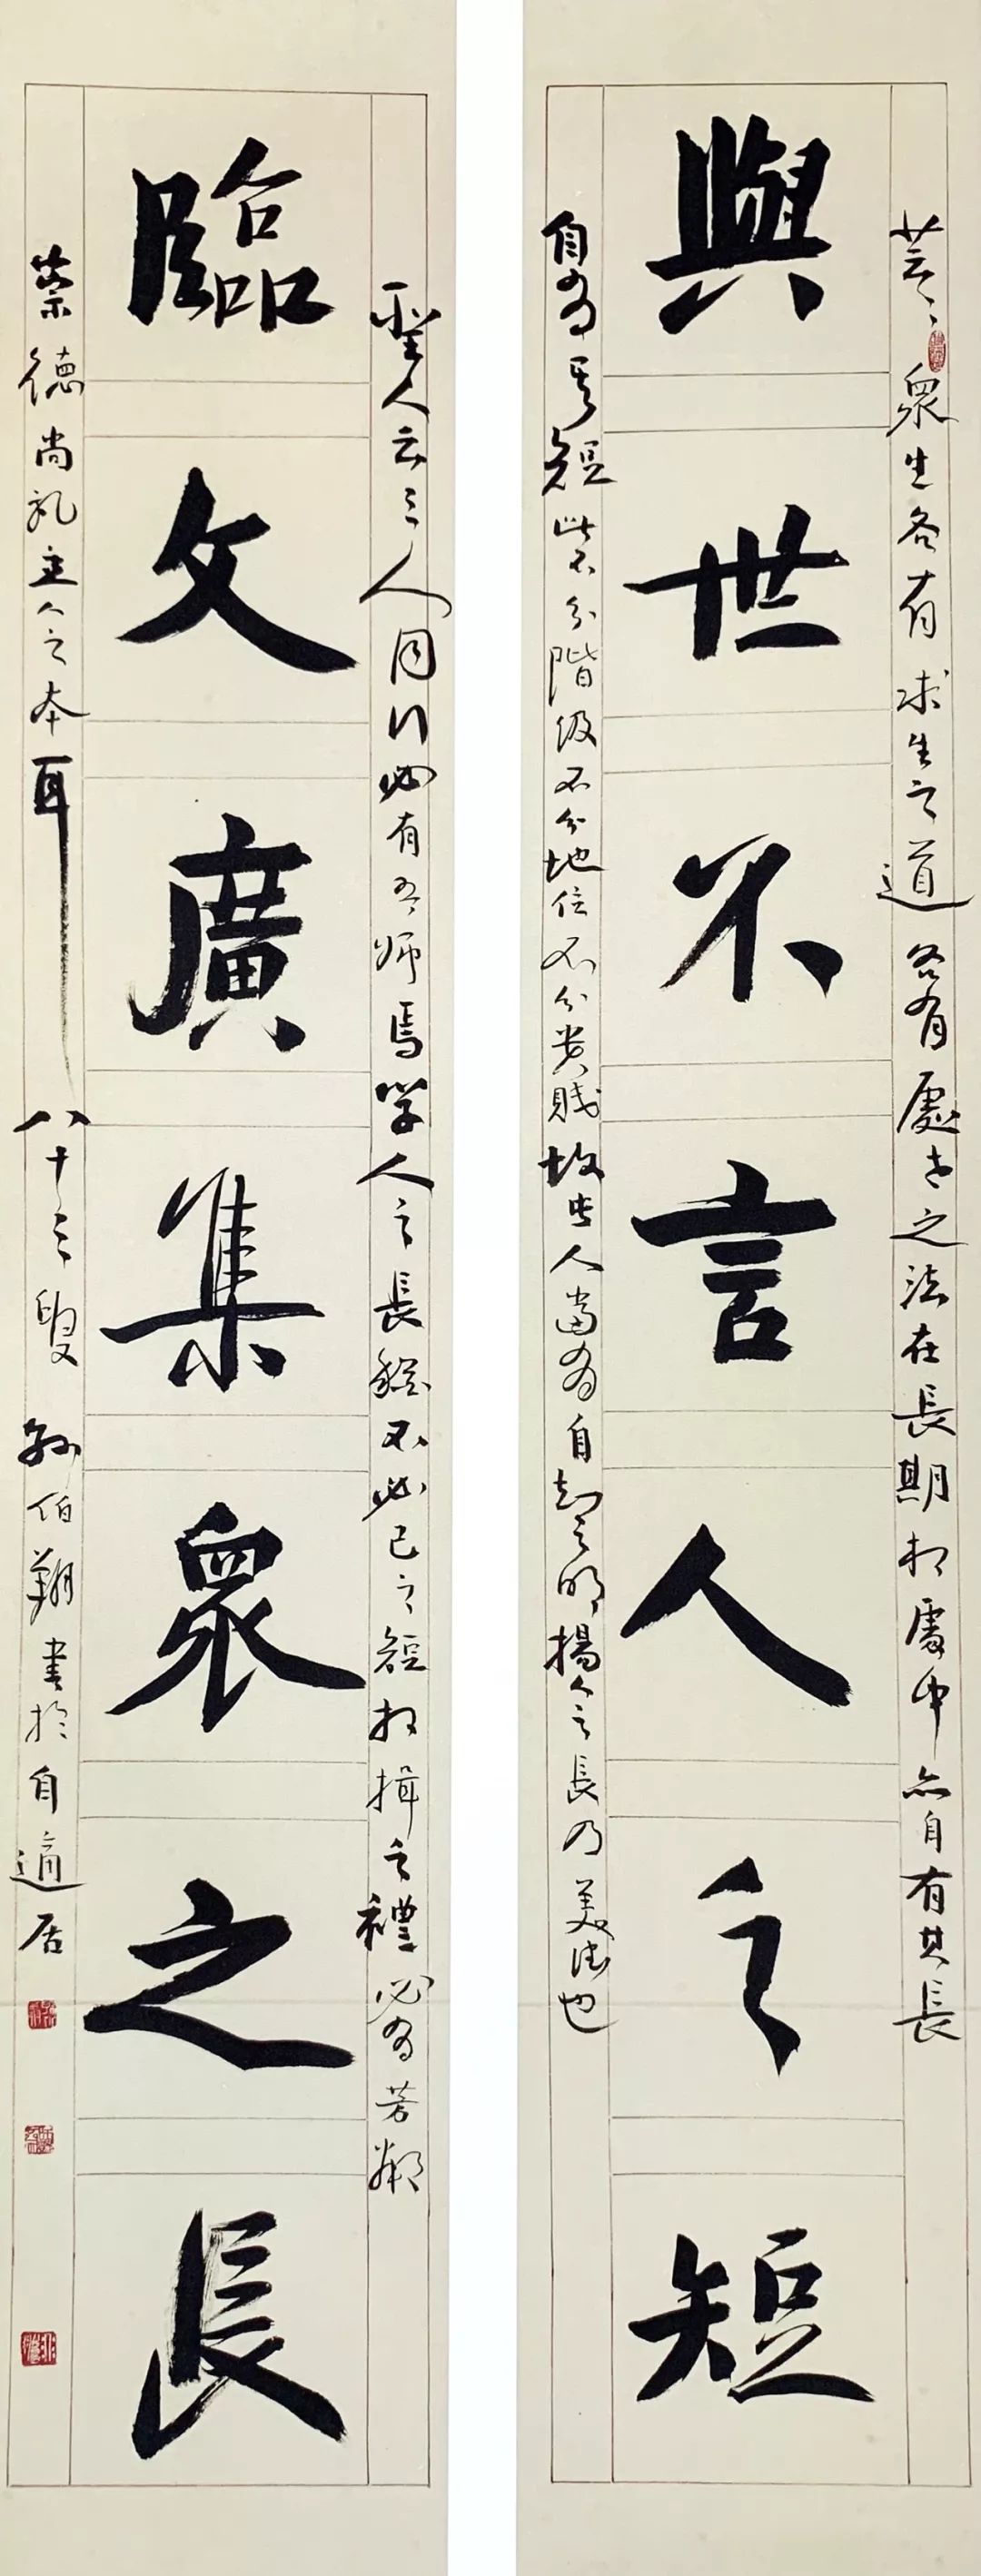 芸々眾生各有求生之道各有處世之法在長期相處中亦自有其長
與世不言人之短
自有其短此不分階級不分地位不分貴賤故世人當為自知之明揚人之長乃美德也
聖人云三人同行必有吾師焉學人之長發不必己之短相揖之禮必為芳鄰
臨文廣集眾之長
崇德尚礼立人之本耳 八十三叟 孫伯翔書於自適居